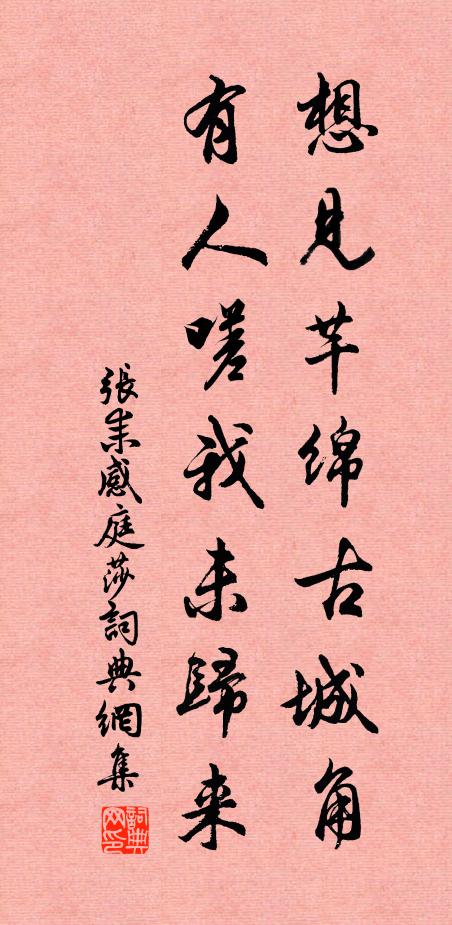 想見芊綿古城角
有人嗟我未歸来
張耒感庭莎詞典網集
詞典网印